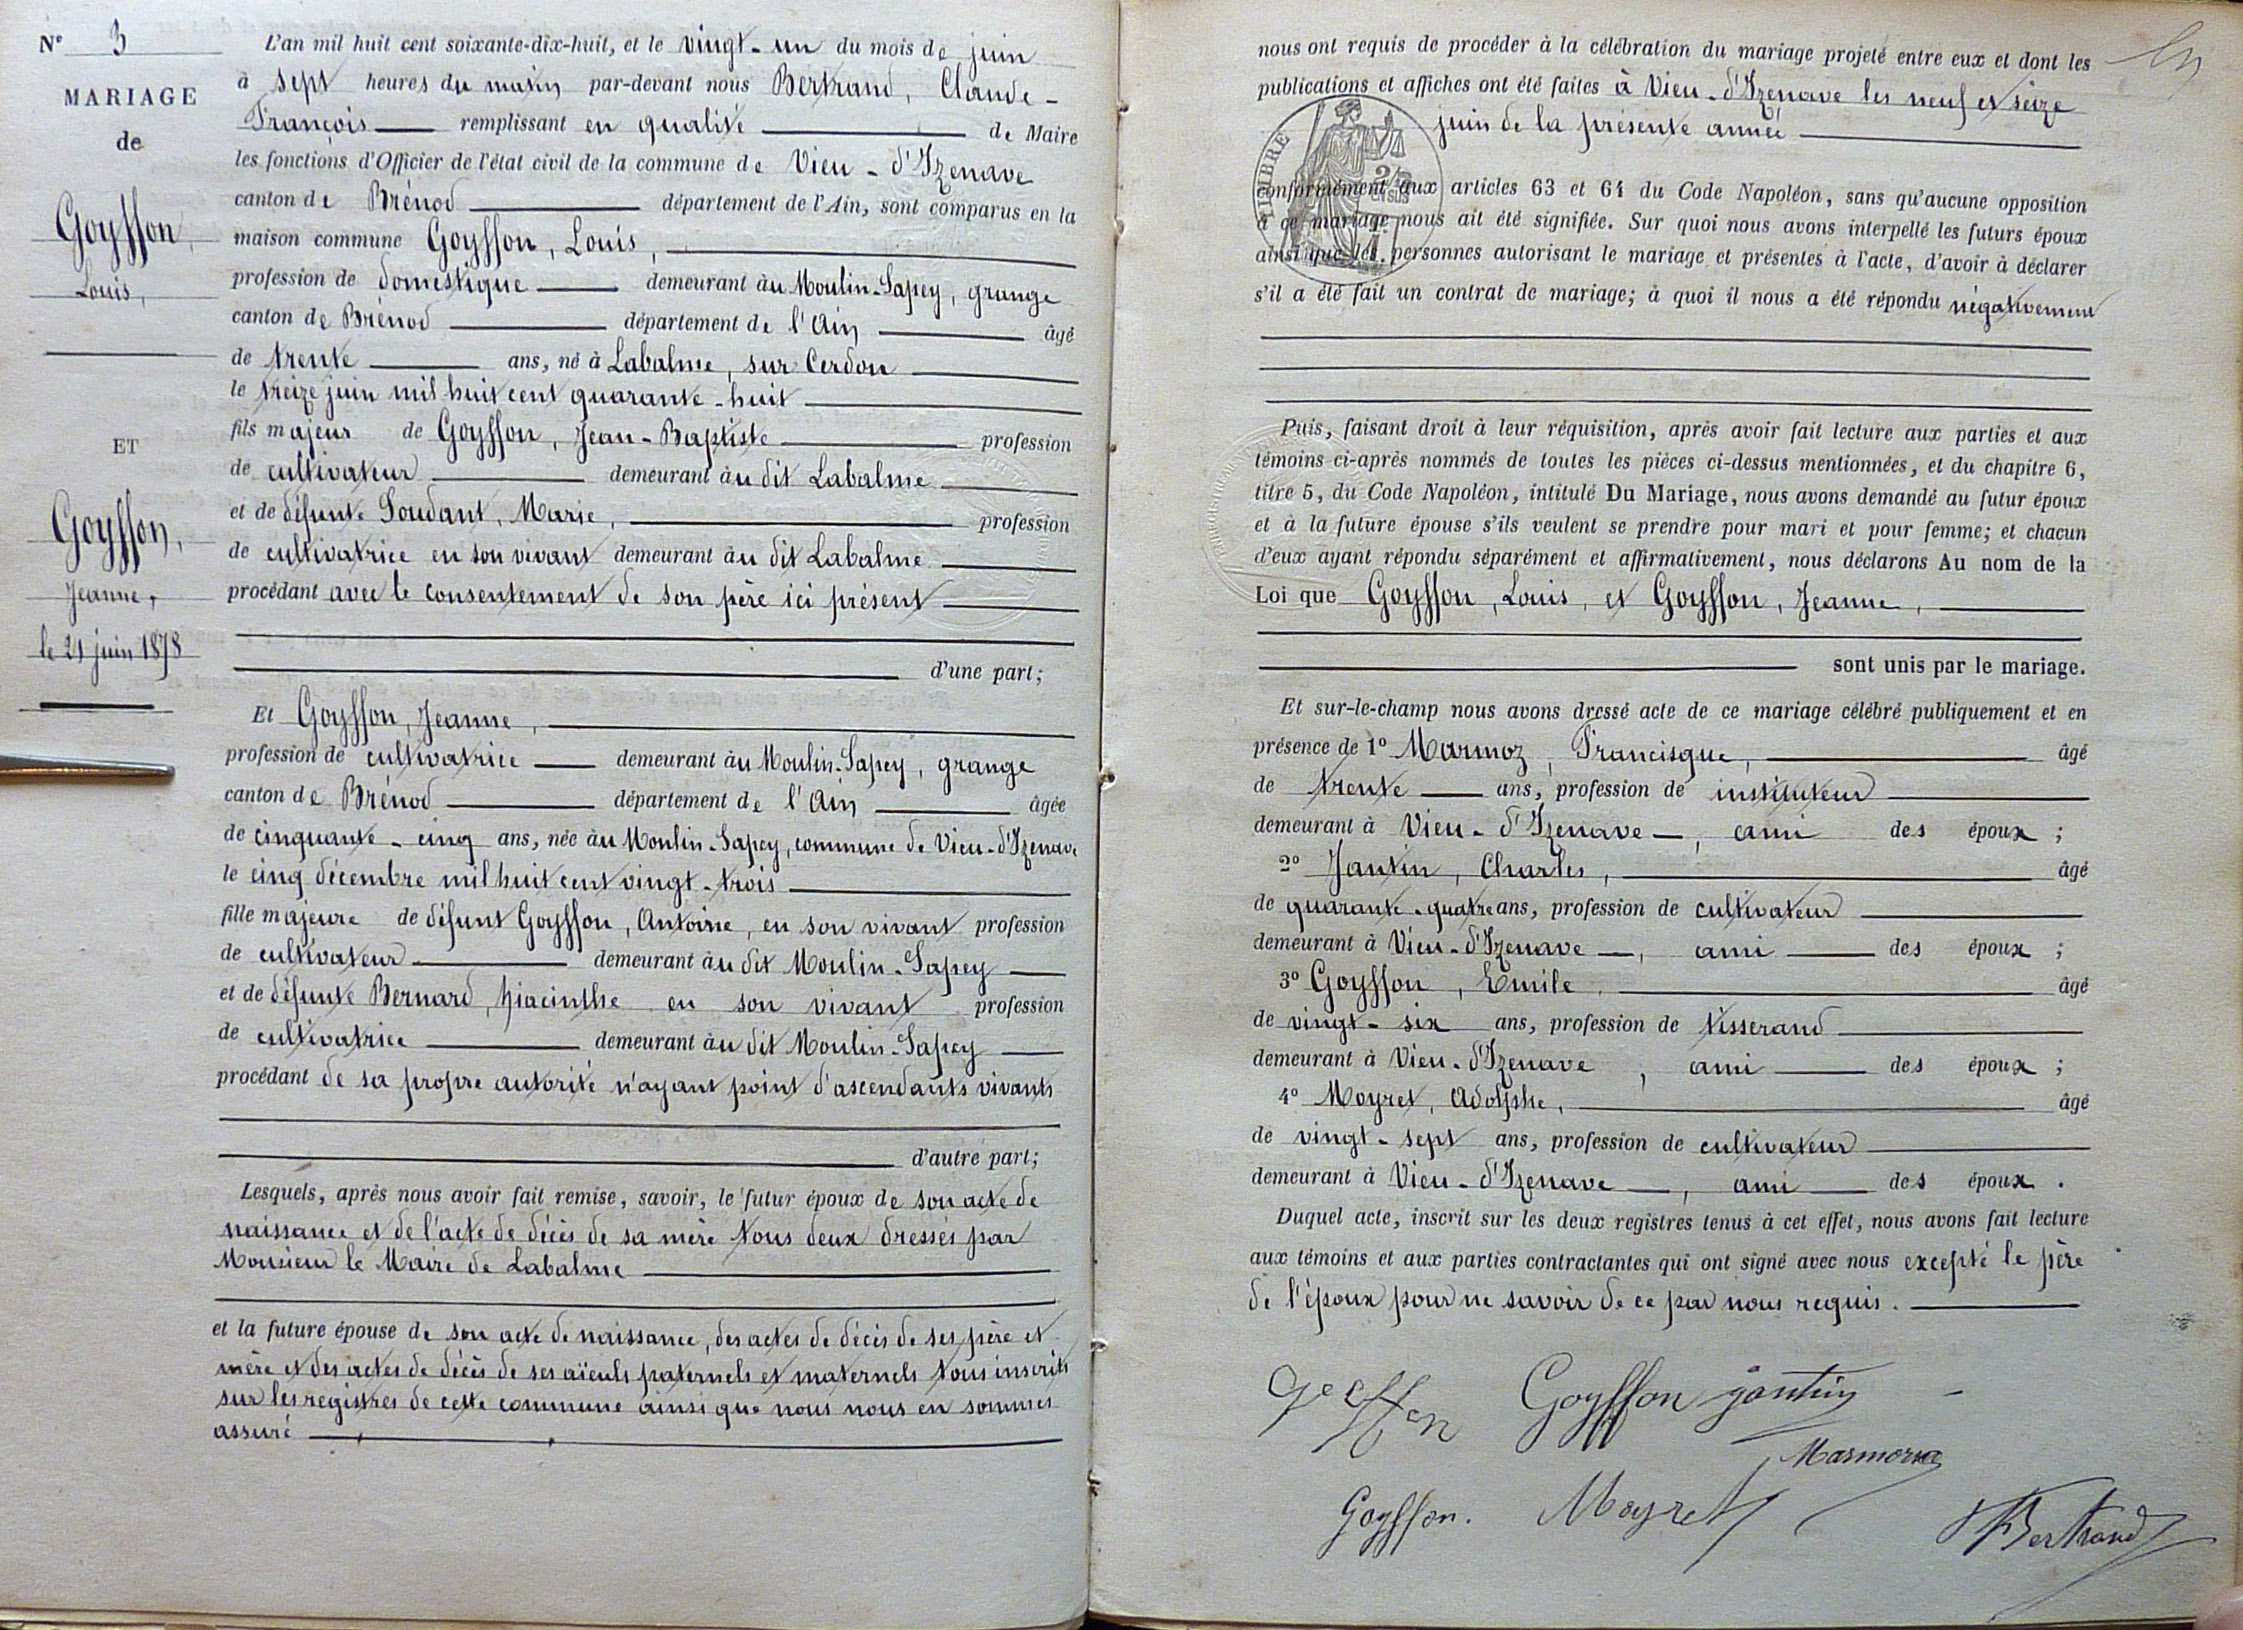 N° 3
MARIAGE
de
Goyffon,
Louis,
ET
Goyffon,
Jeanne,
le 21 juin 1878
L'an mil huit cent soixante-dix-huit, et le vingt-un du mois de juin
à sept heures du matin par-devant nous Bertrand, Claude-
François remplissant en qualité de Maire
les fonctions d'Officier de l'état civil de la commune de Vieu-d'Izenave
canton de Brénod département de l'Ain, sont comparus en la
maison commune Goyffon, Louis,
profession de domestique demeurant au Moulin-Sapey, grange
canton de Brénod département de l'Ain âgé
de trente ans, né à Labalme, sur Cerdon
le treize juin mil huit cent quarante-huit
fils majeur de Goyffon, Jean-Baptiste profession
de cultivateur demeurant au dit Labalme
et de défunte Soudant, Marie, profession
de cultivatrice en son vivant demeurant au dit Labalme
procédant avec le consentement de son père ici présent
d'une part;
Et Goyffon, Jeanne,
profession de cultivatrice demeurant au Moulin-Sapey, grange
canton de Brénod département de l'Ain âgée
de cinquante-cinq ans, née au Moulin-Sapey, commune de Vieu-d'Izenave
le cinq décembre mil huit cent vingt-trois
fille majeure de défunt Goyffon, Antoine, en son vivant profession
de cultivateur demeurant au dit Moulin-Sapey
et de défunte Bernard, hiacinthe en son vivant profession
de cultivatrice demeurant au dit Moulin-Sapey
procédant de sa propre autorité n'ayant point d'ascendants vivants
d'autre part;
Lesquels, après nous avoir fait remise, savoir, le futur époux de son acte de
naissance et de l'acte de décès de sa mère tous deux dressés par
Monsieur le Maire de Labalme
et la future épouse de son acte de naissance, des actes de décès de ses père et
mère et des actes de décès de ses aïeuls paternels et maternels tous inscrits
sur les registres de cette commune ainsi que nous nous en sommes
assuré
nous ont requis de procéder à la célébration du mariage projeté entre eux et dont les
publications et affiches ont été faites à Vieu-d'Izenave les neuf et seize
juin de la présente année
TIMBRE
conformément aux articles 63 et 64 du Code Napoléon, sans qu'aucune opposition
à ce mariage nous ait été signifiée. Sur quoi nous avons interpellé les futurs époux
ainsi que les personnes autorisant le mariage et présentes à l'acte, d'avoir à déclarer
s'il a été fait un contrat de mariage; à quoi il nous a été répondu négativement
Puis, faisant droit à leur réquisition, après avoir fait lecture aux parties et aux
témoins ci-après nommés de toutes les pièces ci-dessus mentionnées, et du chapitre 6,
titre 5, du Code Napoléon, intitulé Du Mariage, nous avons demandé au futur époux
et à la future épouse s'ils veulent se prendre pour mari et pour femme; et chacun
d'eux ayant répondu séparément et affirmativement, nous déclarons Au nom de la
Loi que Goyffon, Louis, et Goyffon, Jeanne,
sont unis par le mariage.
Et sur-le-champ nous avons dressé acte de ce mariage célébré publiquement et en
présence de 1° Marmoz, Francisque, âgé
de trente ans, profession de instituteur
demeurant à Vieu-d'Izenave, ami des époux;
2° Jantin, Charles, âgé
de quarante-quatre ans, profession de cultivateur
demeurant à Vieu-d'Izenave, ami des époux;
3° Goyffon, Emile, âgé
de vingt-six ans, profession de tisserand
demeurant à Vieu-d'Izenave, ami des époux;
4° Moyret, Adolphe, âgé
de vingt-sept ans, profession de cultivateur
demeurant à Vieu-d'Izenave, ami des époux.
Duquel acte, inscrit sur les deux registres tenus à cet effet, nous avons fait lecture
aux témoins et aux parties contractantes qui ont signé avec nous excepté le père
de l'époux pour ne savoir de ce par nous requis.
Goyffon jantin
Goyffon. Moyret
Bertrand